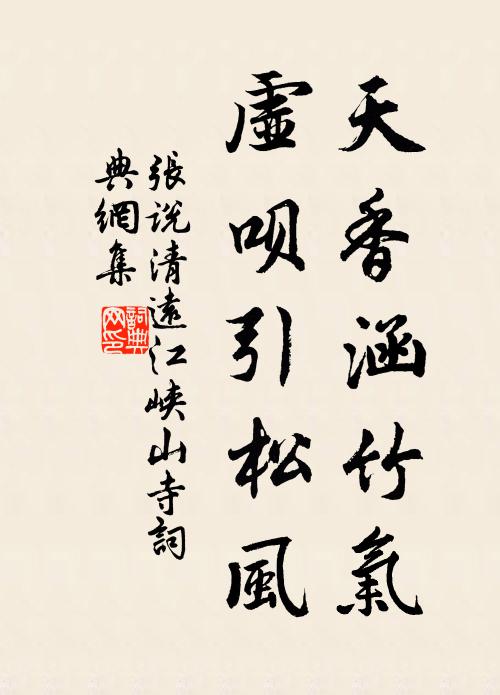 天香涵竹氣
虛唄引松風
張說清遠江峽山寺詞
典網集
詞典
网印